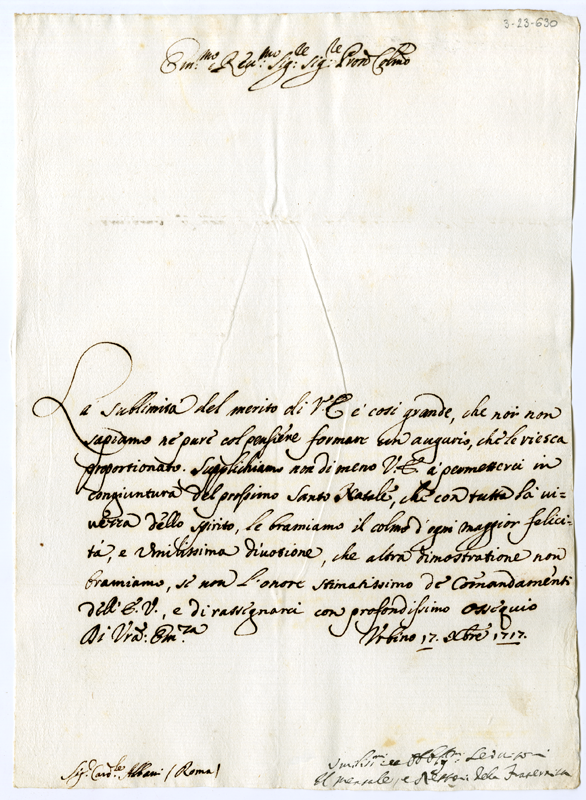 3-23-630
Em:mo e Reu:mo Sig:re Sig:re Pron Colmo
La sublimità del merito di V.E. è cosi grande, che noi non
sapiamo ne pure col pensiere formare un augurio, che le riesca
proportionato. Supplichiamo non di meno V.E. a permetterci in
congiuntura del prossimo Santo Natale, che con tutta la vi-
uezza dello spirito, le bramiamo il colmo d'ogni maggior felici-
tà, e Vmilissima diuotione, che altra dimostratione non
bramiamo, se non l'onore stimatissimo de Comandamenti
dell'E.V., e di rassegnarci con profondissimo ossequio
Di Vrã. Em:za Vrbino 17. Xbre 1717.
Sig:r Card:le Albani (Roma)
Seruitori
della Fraternita